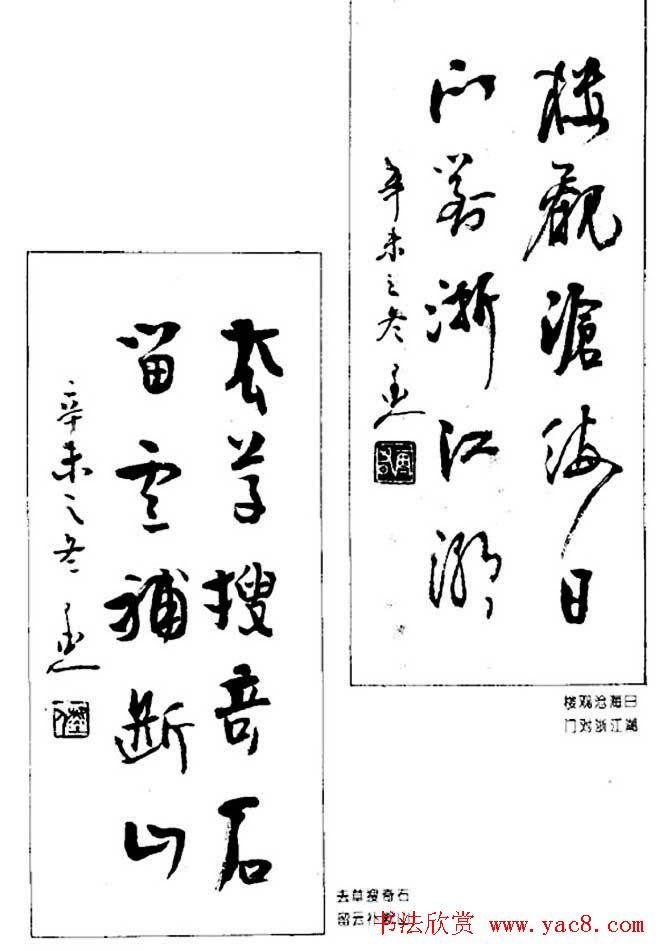 楼觀滄海日
门對浙江潮
辛未之冬
楼观沧海日
门对浙江潮
去草搜奇石
留雲補断山
辛未之冬
去草搜奇石
留云补断山
书法欣赏 www.yac8.com